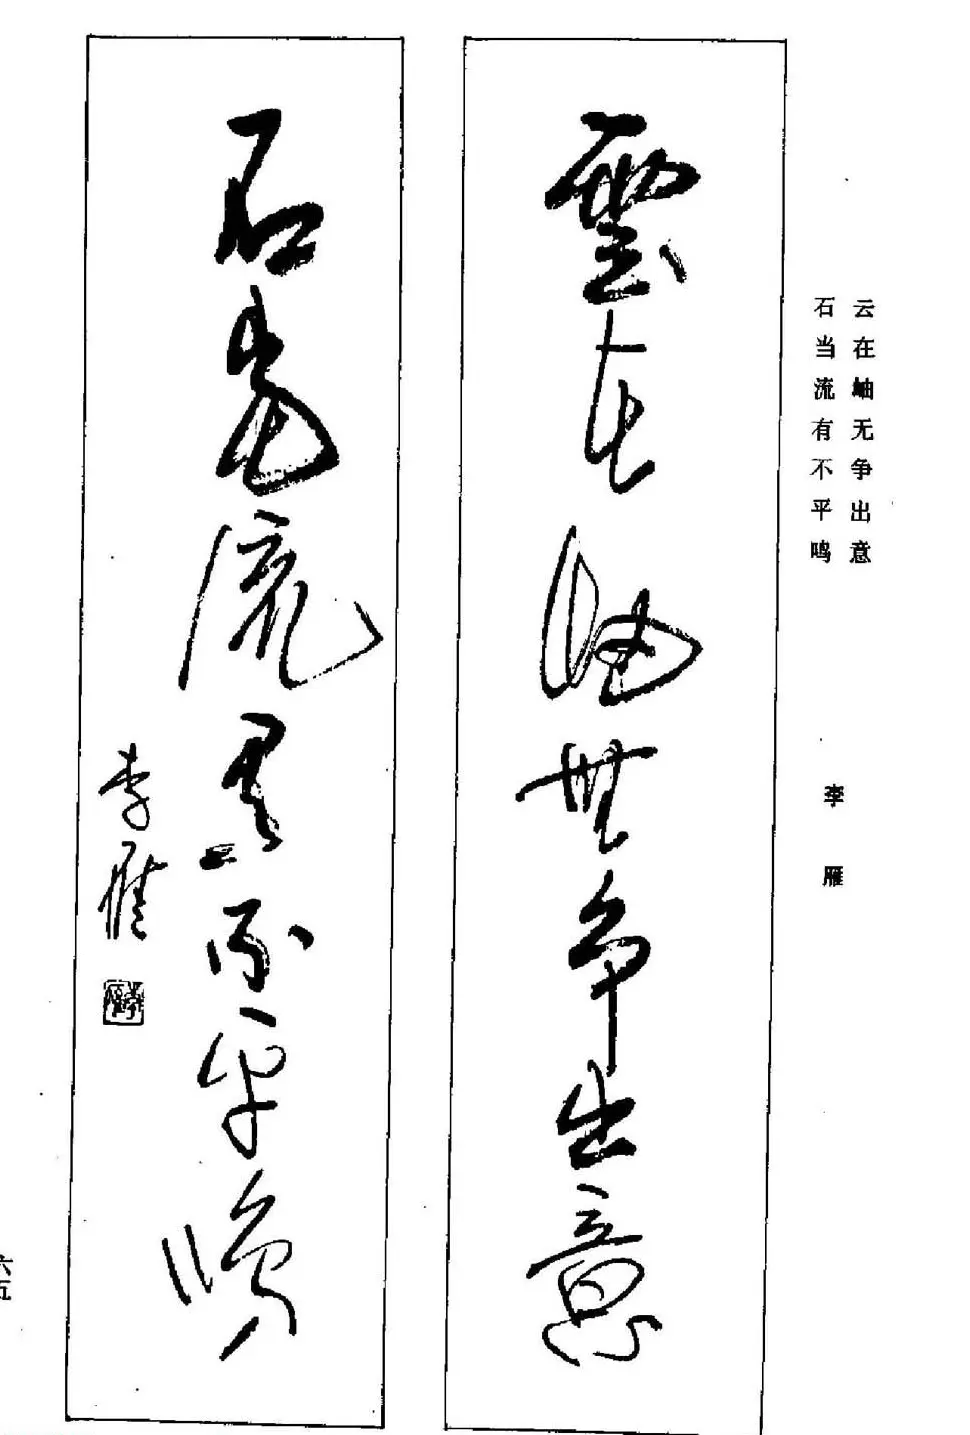 云在岫无争出意
石当流有不平鸣
李雁
雲在岫無争出意
石當流有不平鳴
李雁
六五